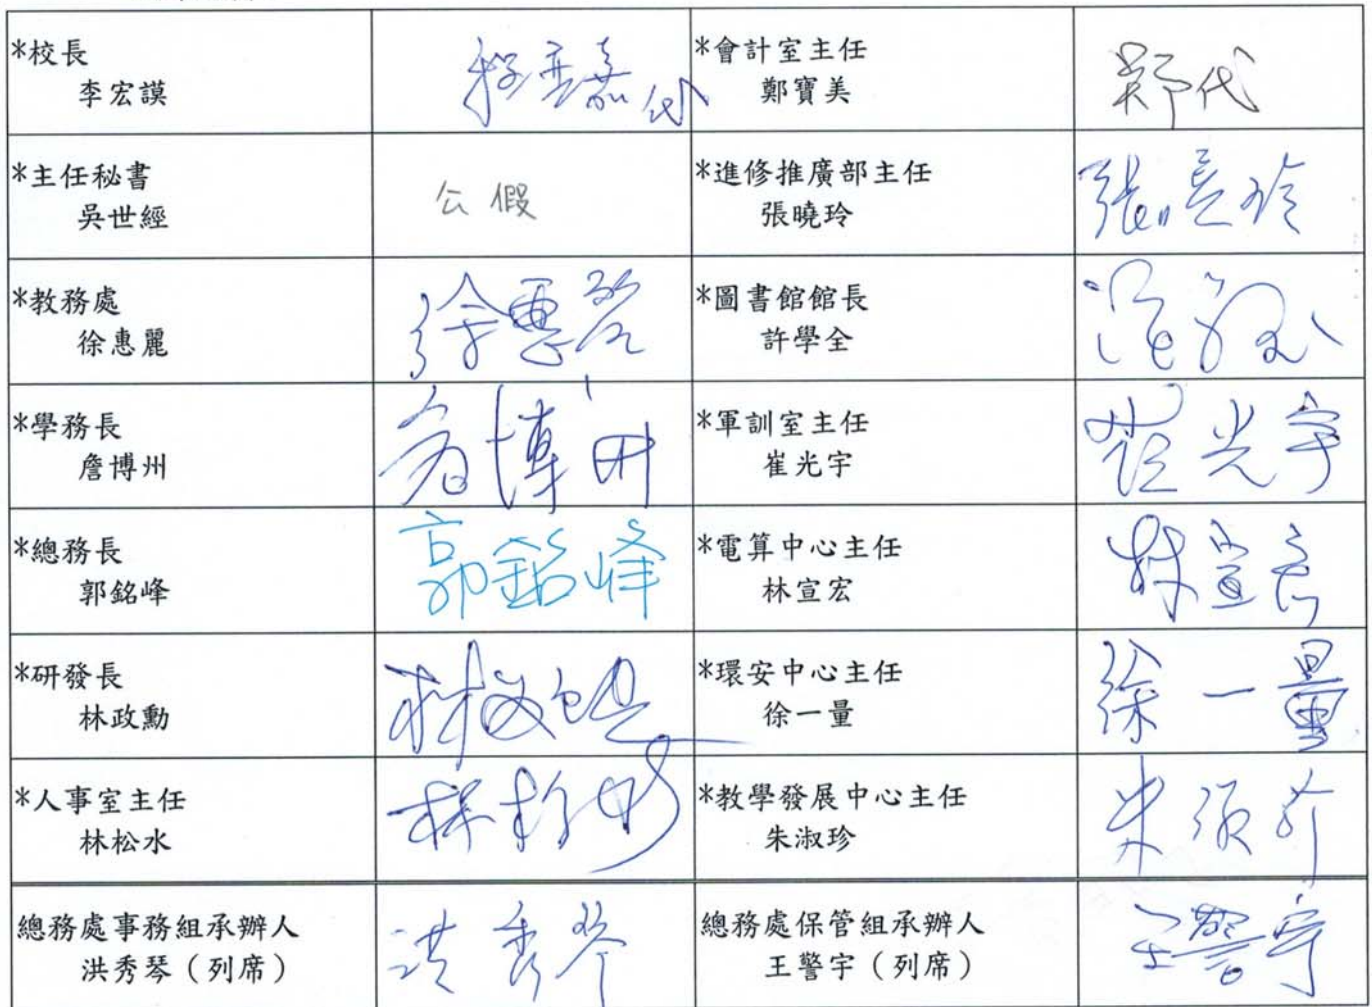 *校長
李宏謨
*會計室主任
鄭寶美
鄭代
*主任秘書
吳世經
公假
*進修推廣部主任
張曉玲
張曉玲
*教務處
徐惠麗
徐惠麗
*圖書館館長
許學全
*學務長
詹博州
詹博州
*軍訓室主任
崔光宇
崔光宇
*總務長
郭銘峰
郭銘峰
*電算中心主任
林宣宏
林宣宏
*研發長
林政勳
林政勳
*環安中心主任
徐一量
徐一量
*人事室主任
林松水
林松水
*教學發展中心主任
朱淑珍
朱淑珍
總務處事務組承辦人
洪秀琴（列席）
洪秀琴
總務處保管組承辦人
王警宇（列席）
王警宇